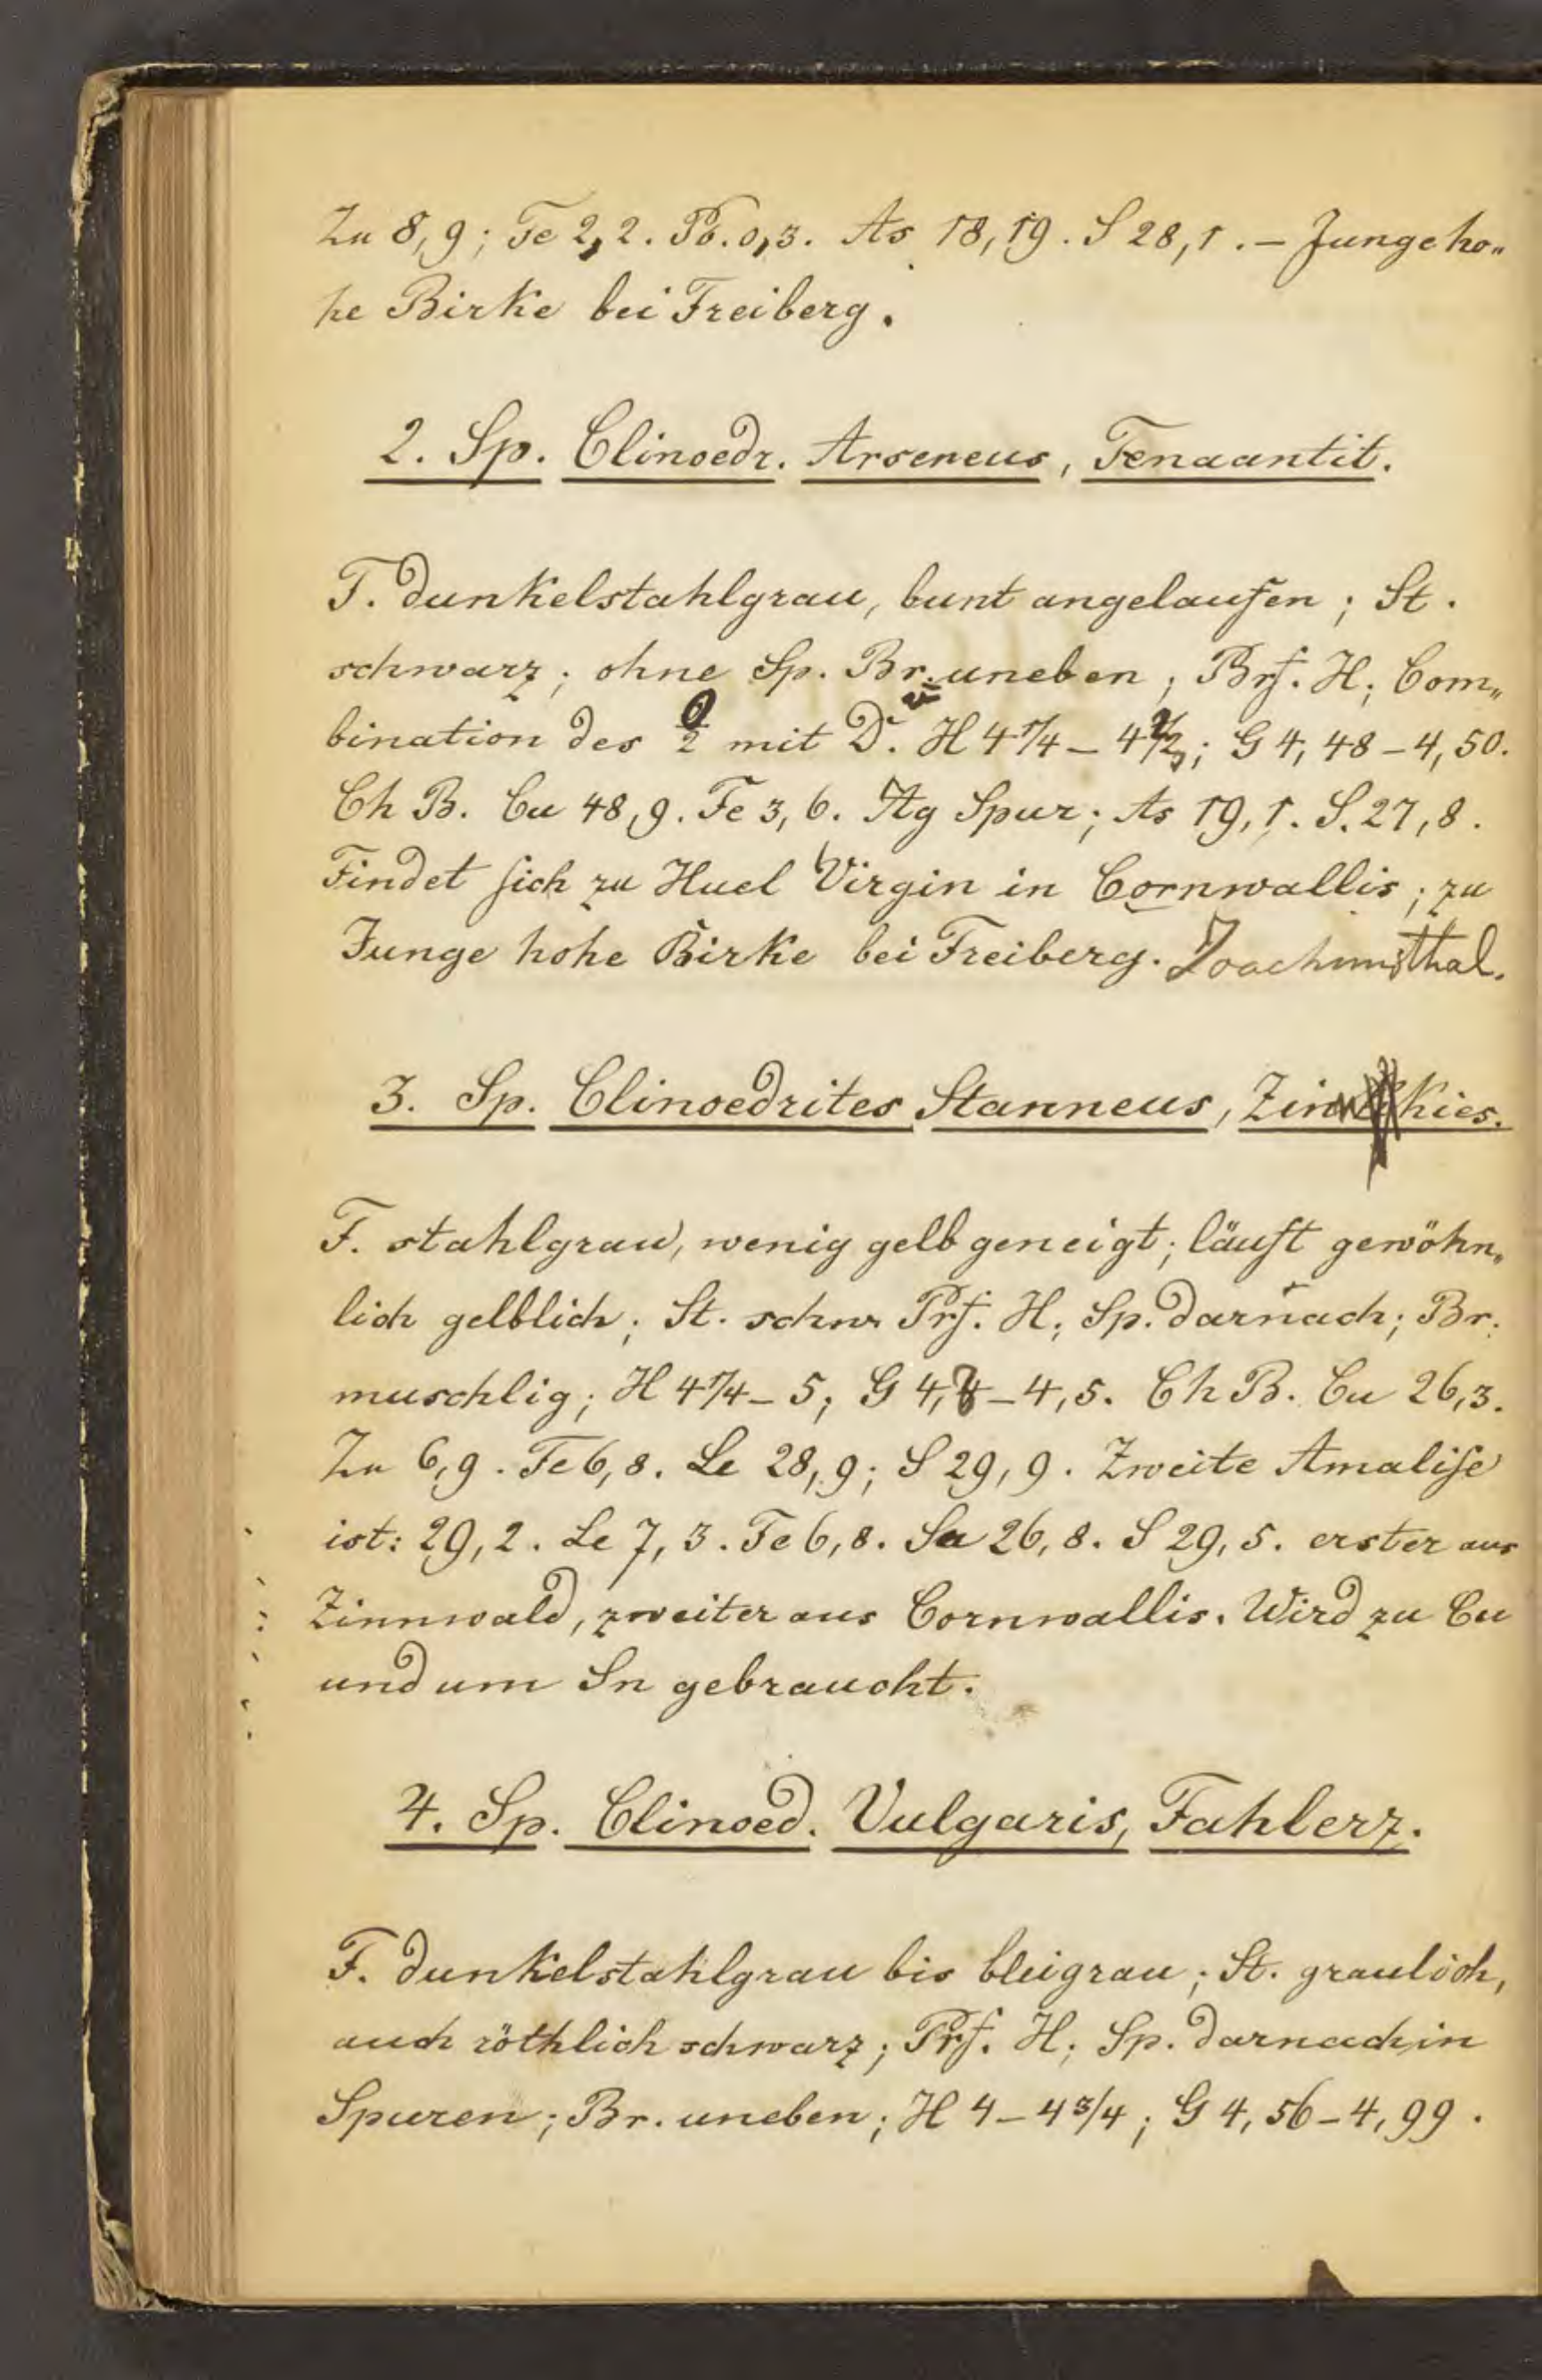 Zn 8,9; Fe 2,2. Pb. 0,3. As 18,19. S 28,1. – Junge ho„
he Birke bei Freiberg.
2. Sp. Clinoedr. Arseneus, Tenaantit.
F. dunkelstahlgrau, bunt angelaufen; St.
schwarz; ohne Sp. Br. uneben; Brf. H; Com„
bination des O/2 mit D. H 4 1/4 – 4 1/2; G 4,48 – 4,50.
Ch B. Cu 48,9. Fe 3,6. Ag Spur; As 19,1. S. 27,8.
Findet sich zu Huel Virgin in Cornwallis; zu
Junge hohe Birke bei Freiberg. Joachimsthal.
3. Sp. Clinoedrites Stanneus, Zinnkies.
F. stahlgrau, wenig gelb geneigt; läuft gewöhn„
lich gelblich; St. schw. Prf. H; Sp. darnach; Br.
muschlig; H 4 1/4 – 5; G – 4,5. Ch B. Cu 26,3.
Zn 6,9. Fe 6,8. Le 28,9; S 29,9. Zweite Amalise
ist: 29,2. Le 7,3. Fe 6,8. Sn 26,8. S 29,5. erster aus
Zinnwald, zweiter aus Cornwallis. Wird zu Cu
und um Sn gebraucht.
4. Sp. Clinoed. Vulgaris, Fahlerz.
F. dunkelstahlgrau bis bleigrau; St. graulich,
auch röthlich schwarz; Prf. H; Sp. darnach in
Spuren; Br. uneben; H 4 – 4 3/4; G 4,56 – 4,99.